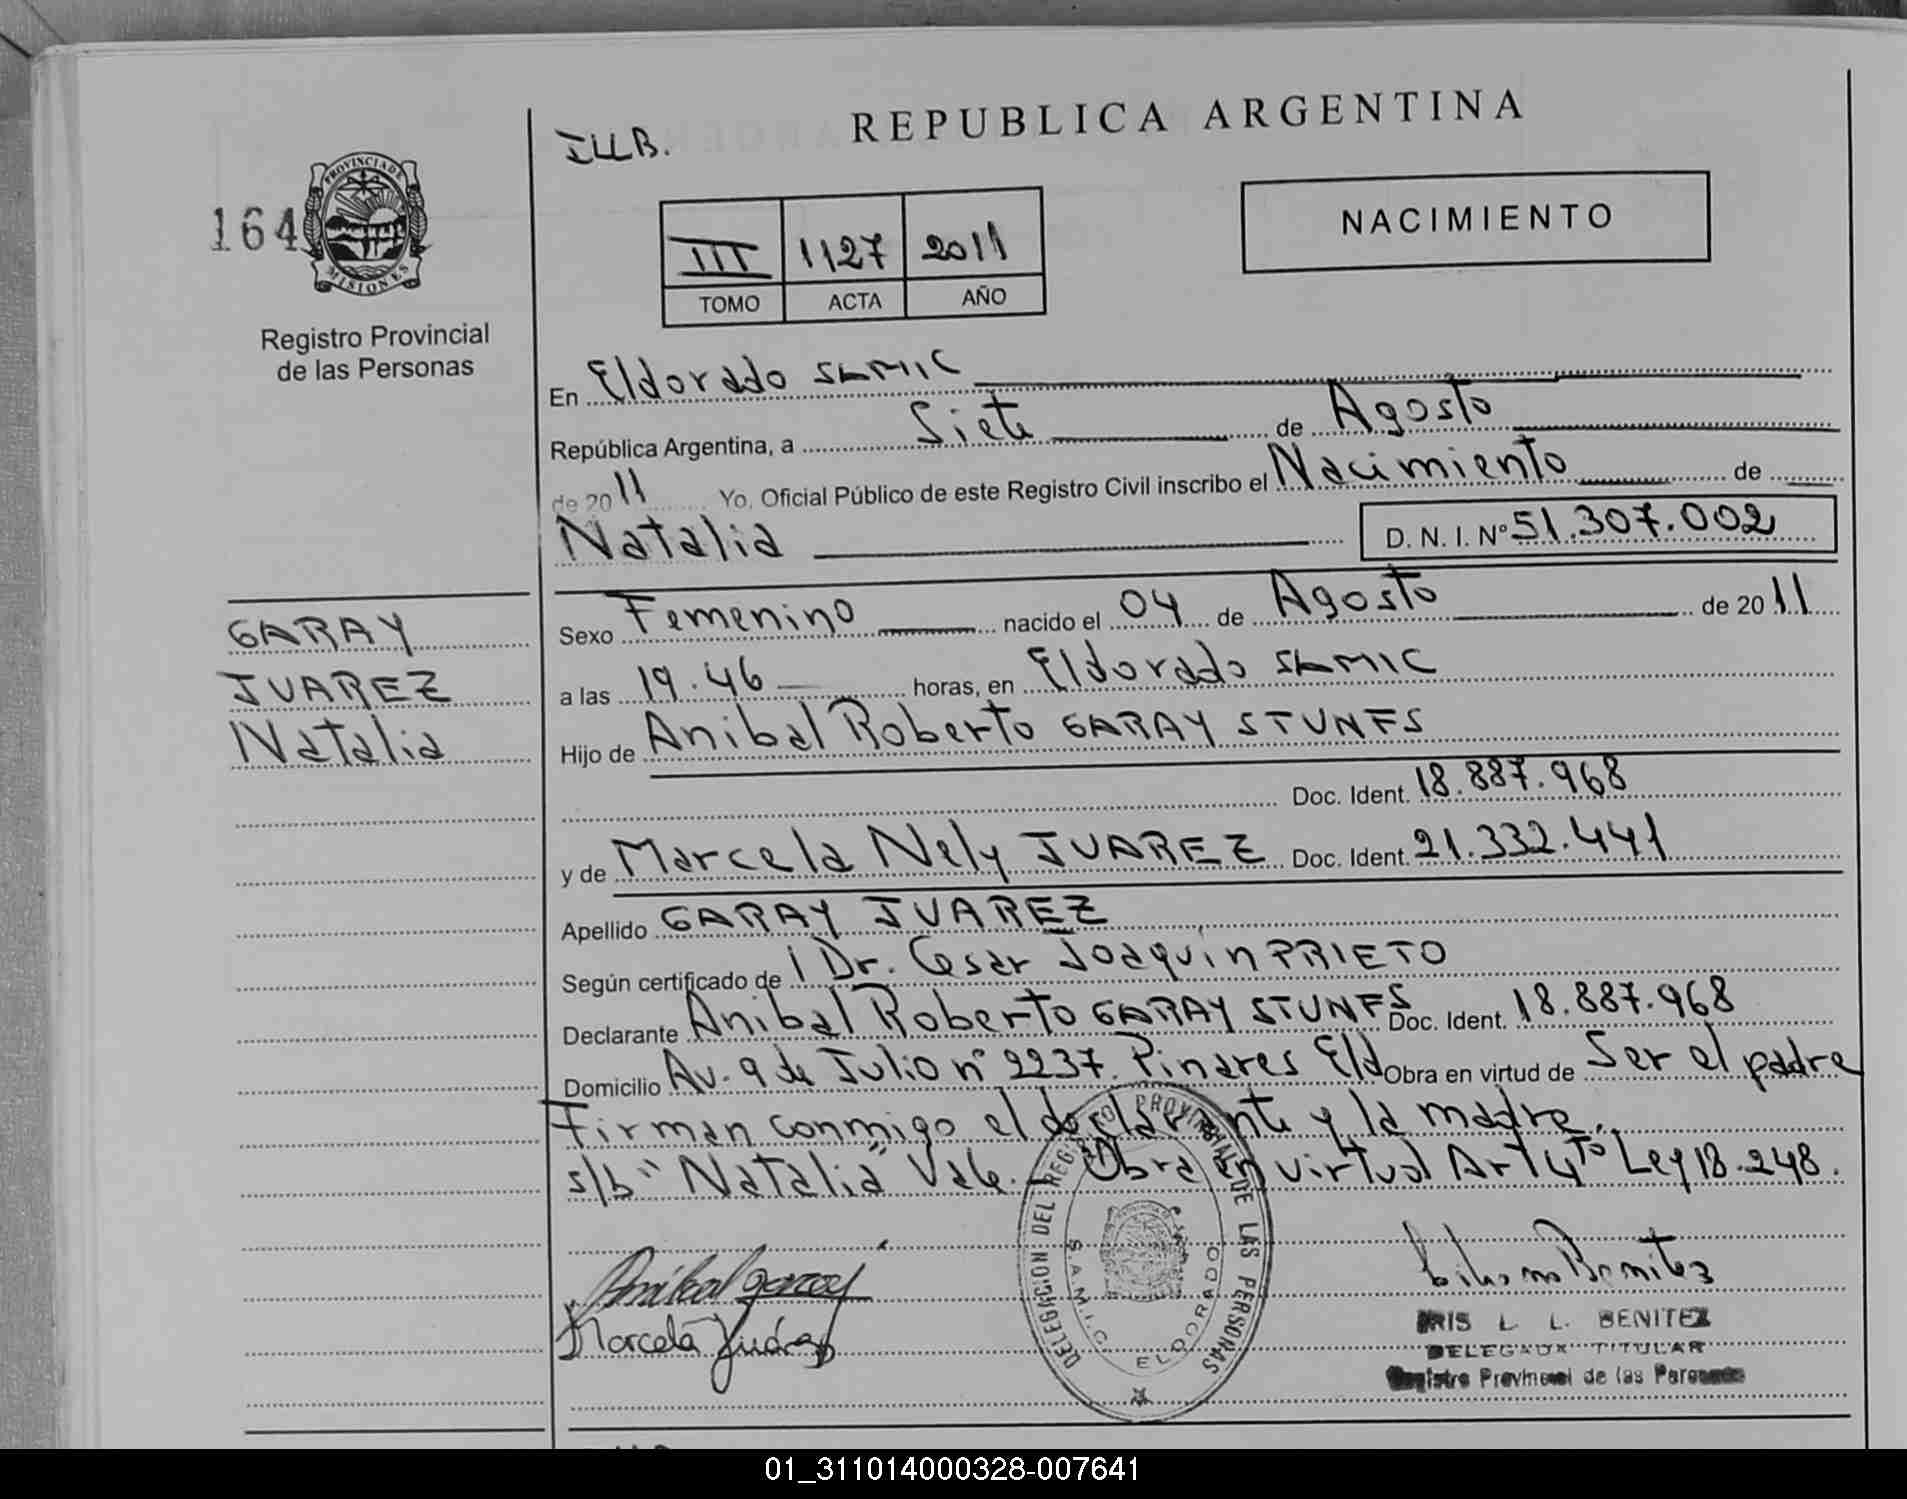 REPUBLICA ARGENTINA
ILLB.
NACIMIENTO
164
PROVINCIA DE
MISIONES
Registro Provincial
de las Personas
III 1127 2011
TOMO ACTA AÑO
En Eldorado SAMIC
República Argentina, a Siete de Agosto
de 20 11 Yo, Oficial Público de este Registro Civil inscribo el Nacimiento de
Natalia D. N. I. Nº 51.307.002
Sexo Femenino nacido el 04 de Agosto de 20 11
a las 19.46 horas, en Eldorado SAMIC
Hijo de Anibal Roberto GARAY STUNFS
Doc. Ident. 18.887.968
y de Marcela Nely JUAREZ Doc. Ident. 21.332.441
Apellido GARAY JUAREZ
Según certificado de Dr. Cesar Joaquin PRIETO
Declarante Anibal Roberto GARAY STUNFS Doc. Ident. 18.887.968
Domicilio Av. 9 de Julio nº 2237. Pinares Eld Obra en virtud de Ser el padre
Firman conmigo el declarante y la madre.
s/b "Natalia" Vale. - Obra en virtud Art 4to Ley 18.248.
GARAY
JUAREZ
Natalia
Anibal garay
Marcela Juárez
DELEGACION DEL REGISTRO PROVINCIAL DE LAS PERSONAS
S.A.M.I.C. ELDORADO
Benitez
IRIS L. L. BENITEZ
DELEGADA TITULAR
Registro Provincial de las Personas
01_311014000328-007641